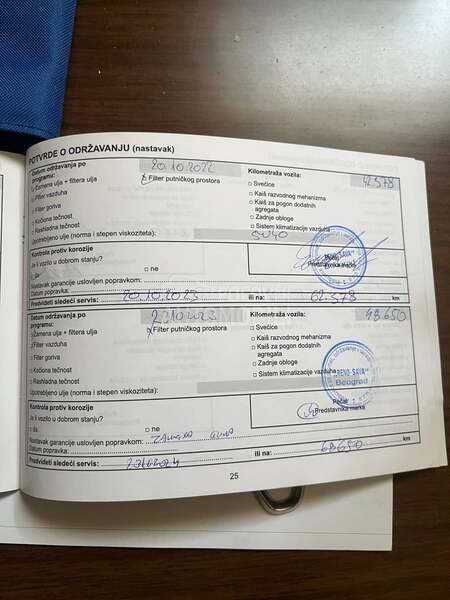 POTVRDE O ODRŽAVANJU (nastavak)
Datum održavanja po programu: 20.10.2022 Kilometraža vozila: 42.578
Zamena ulja + filtera ulja Filter putničkog prostora Svećice
Filter vazduha Kaiš razvodnog mehanizma
Filter goriva Kaiš za pogon dodatnih agregata
Kočiona tečnost Zadnje obloge
Rashladna tečnost Sistem klimatizacije vazduha
Upotrebljeno ulje (norma i stepen viskoziteta): 5W40
Kontrola protiv korozije
Je li vozilo u dobrom stanju? Pečat
da ne Predstavnika marke
Nastavak garancije uslovljen popravkom:
Datum popravke:
Predvideti sledeći servis: 20.10.2023 ili na: 62.578 km
Datum održavanja po programu: Kilometraža vozila: 48.650
Zamena ulja + filtera ulja Filter putničkog prostora Svećice
Filter vazduha Kaiš razvodnog mehanizma
Filter goriva Kaiš za pogon dodatnih agregata
Kočiona tečnost Zadnje obloge
Rashladna tečnost Sistem klimatizacije vazduha
Upotrebljeno ulje (norma i stepen viskoziteta):
RENO-SAVA
Beograd
Kontrola protiv korozije
Je li vozilo u dobrom stanju? Pečat
da ne Predstavnika marke
Nastavak garancije uslovljen popravkom:
Datum popravke:
Predvideti sledeći servis: ili na: 68.650 km
25